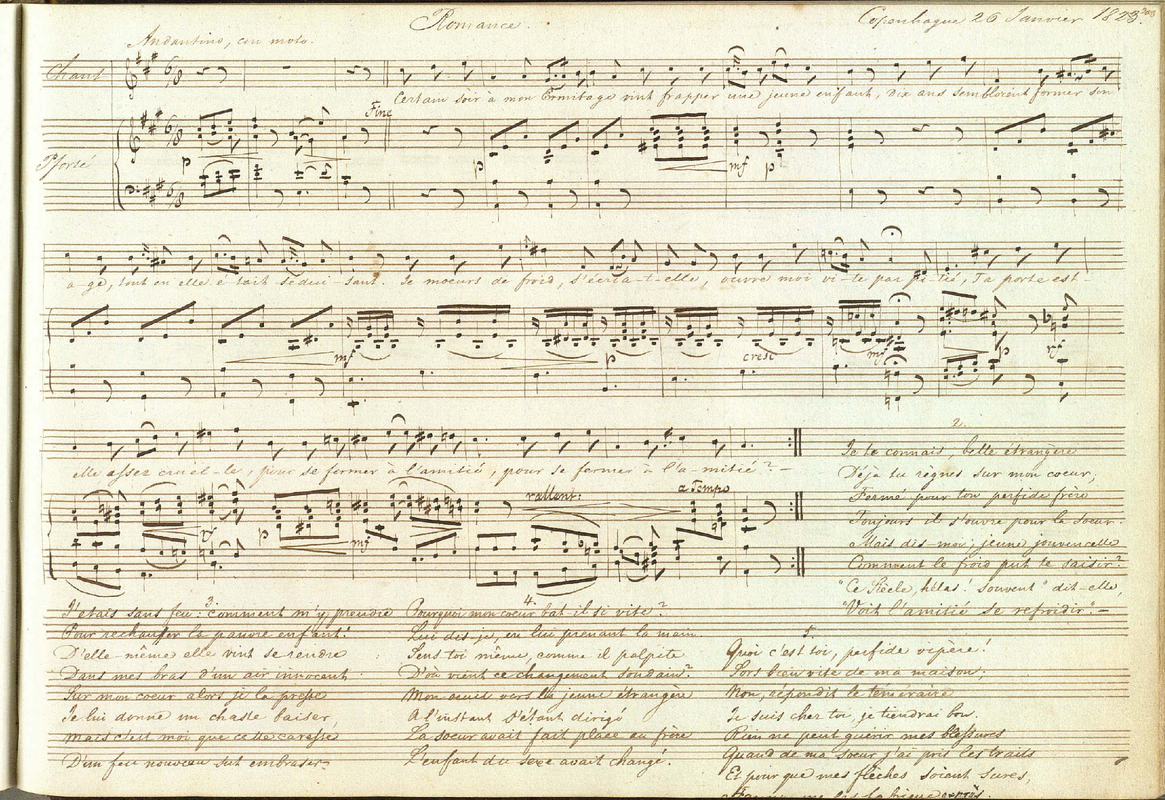 Romance.
Copenhague 26 Janvier 1823.
Andantino, con moto.
Chant
Certain soir à mon Ermitage vint frapper une jeune enfant, Dix ans sembloient former son
Fine
Pforté
p
p
mf
p
a-ge, tout en elle é-tait sédui-sant. Je moeurs de froid, s'écria-t-elle, ouvre moi vi-te par pi-tié, Ta porte est-
mf
p
cresc
mf
p
elle assez cruel-le, pour se fermer à l'amitié, pour se fermer à l'a-mitié?-
rallent:
a Tempo
p
mf
2.
Je te connais, belle étrangère
Déjà tu règnes sur mon coeur;
Fermé pour ton perfide frère
Toujours il s'ouvre pour la soeur.
Mais dis-moi, jeune jouvencelle
Comment le froid put te saisir?
"Ce Siècle, hélas! souvent" dit-elle,
"Voit l'amitié se refroidir."-
3.
J'étais sans feu: comment m'y prendre
Pour rechauffer la pauvre enfant!
D'elle-même elle vint se rendre
Dans mes bras d'un air innocent
Sur mon coeur alors je la presse
Je lui donne un chaste baiser,
Mais c'est moi que cette caresse
D'un feu nouveau sut embraser.
4.
Pourquoi mon coeur bat il si vite?
Lui dis-je, en lui prenant la main.
Sens toi même, comme il palpite
D'où vient ce changement soudain?
Mon oeuil vers la jeune étrangère
A l'instant s'étant dirigé
La soeur avait fait place au frère
L'enfant du sexe avait changé.
5.
Quoi c'est toi, perfide vipère!
Sors bien vite de ma maison;
Non, répondit le témeraire
Je suis chez toi, je tiendrai bon.
Rien ne peut guérir mes blessures
Quand de ma Soeur j'ai pris les traits
Et pour que mes flèches soient sures,